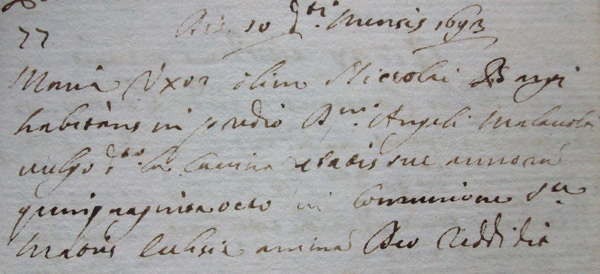 77
Die 10 d.ti Mensis 1693
Maria Uxor olim Nicolai
habitans in predio D.ni Angeli Malavolti
vulgo d.to la etatis sue annorū
quinquaginta octo in Comunione S.ce
Matris Eclesie animā Deo Reddidit